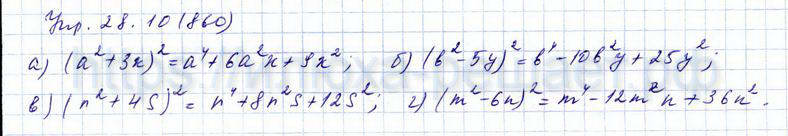 Упр. 28.10 (860)
а) (a²+3x)²=a⁴+6a²x+9x²; б) (b²-5y)²=b⁴-10b²y+25y²;
в) (n²+4s)²=n⁴+8n²s+12s²; г) (m²-6n)²=m⁴-12m²n+36n².